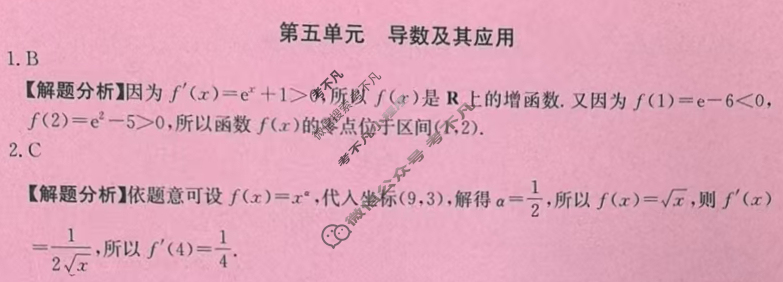 第五单元 导数及其应用
1. B
【解题分析】因为 f′(x)=eˣ+1>0,所以 f(x)是 R 上的增函数. 又因为 f(1)=e-6<0,
f(2)=e²-5>0,所以函数 f(x)的零点位于区间(1,2).
2. C
【解题分析】依题意可设 f(x)=x^α,代入坐标(9,3),解得 α=1/2,所以 f(x)=√x,则 f′(x)
=1/(2√x),所以 f′(4)=1/4.
微信公众号 考不凡
考不凡